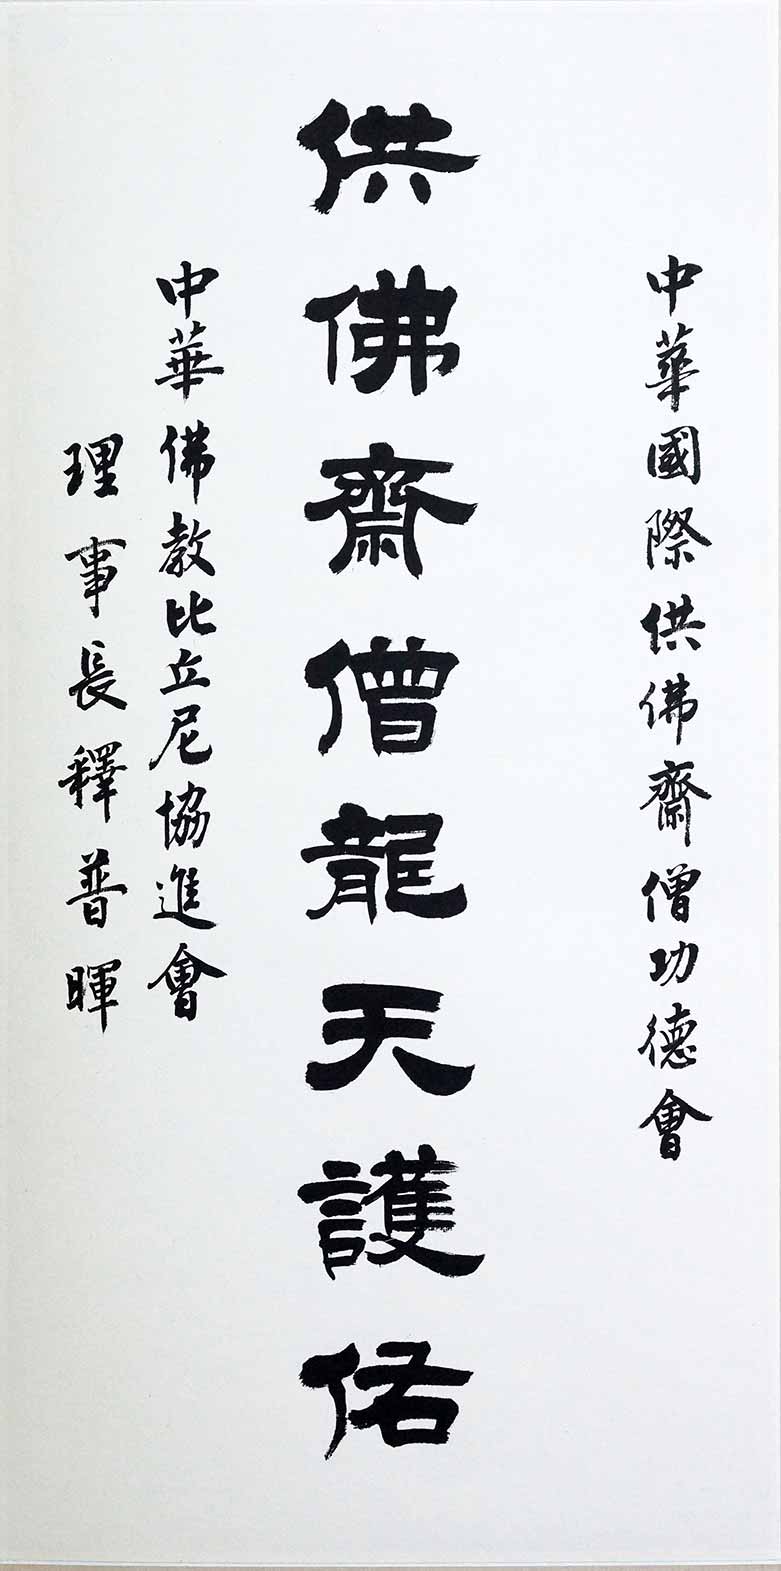 中華國際供佛齋僧功德會
供佛齋僧龍天護佑
中華佛教比丘尼協進會
理事長釋普暉